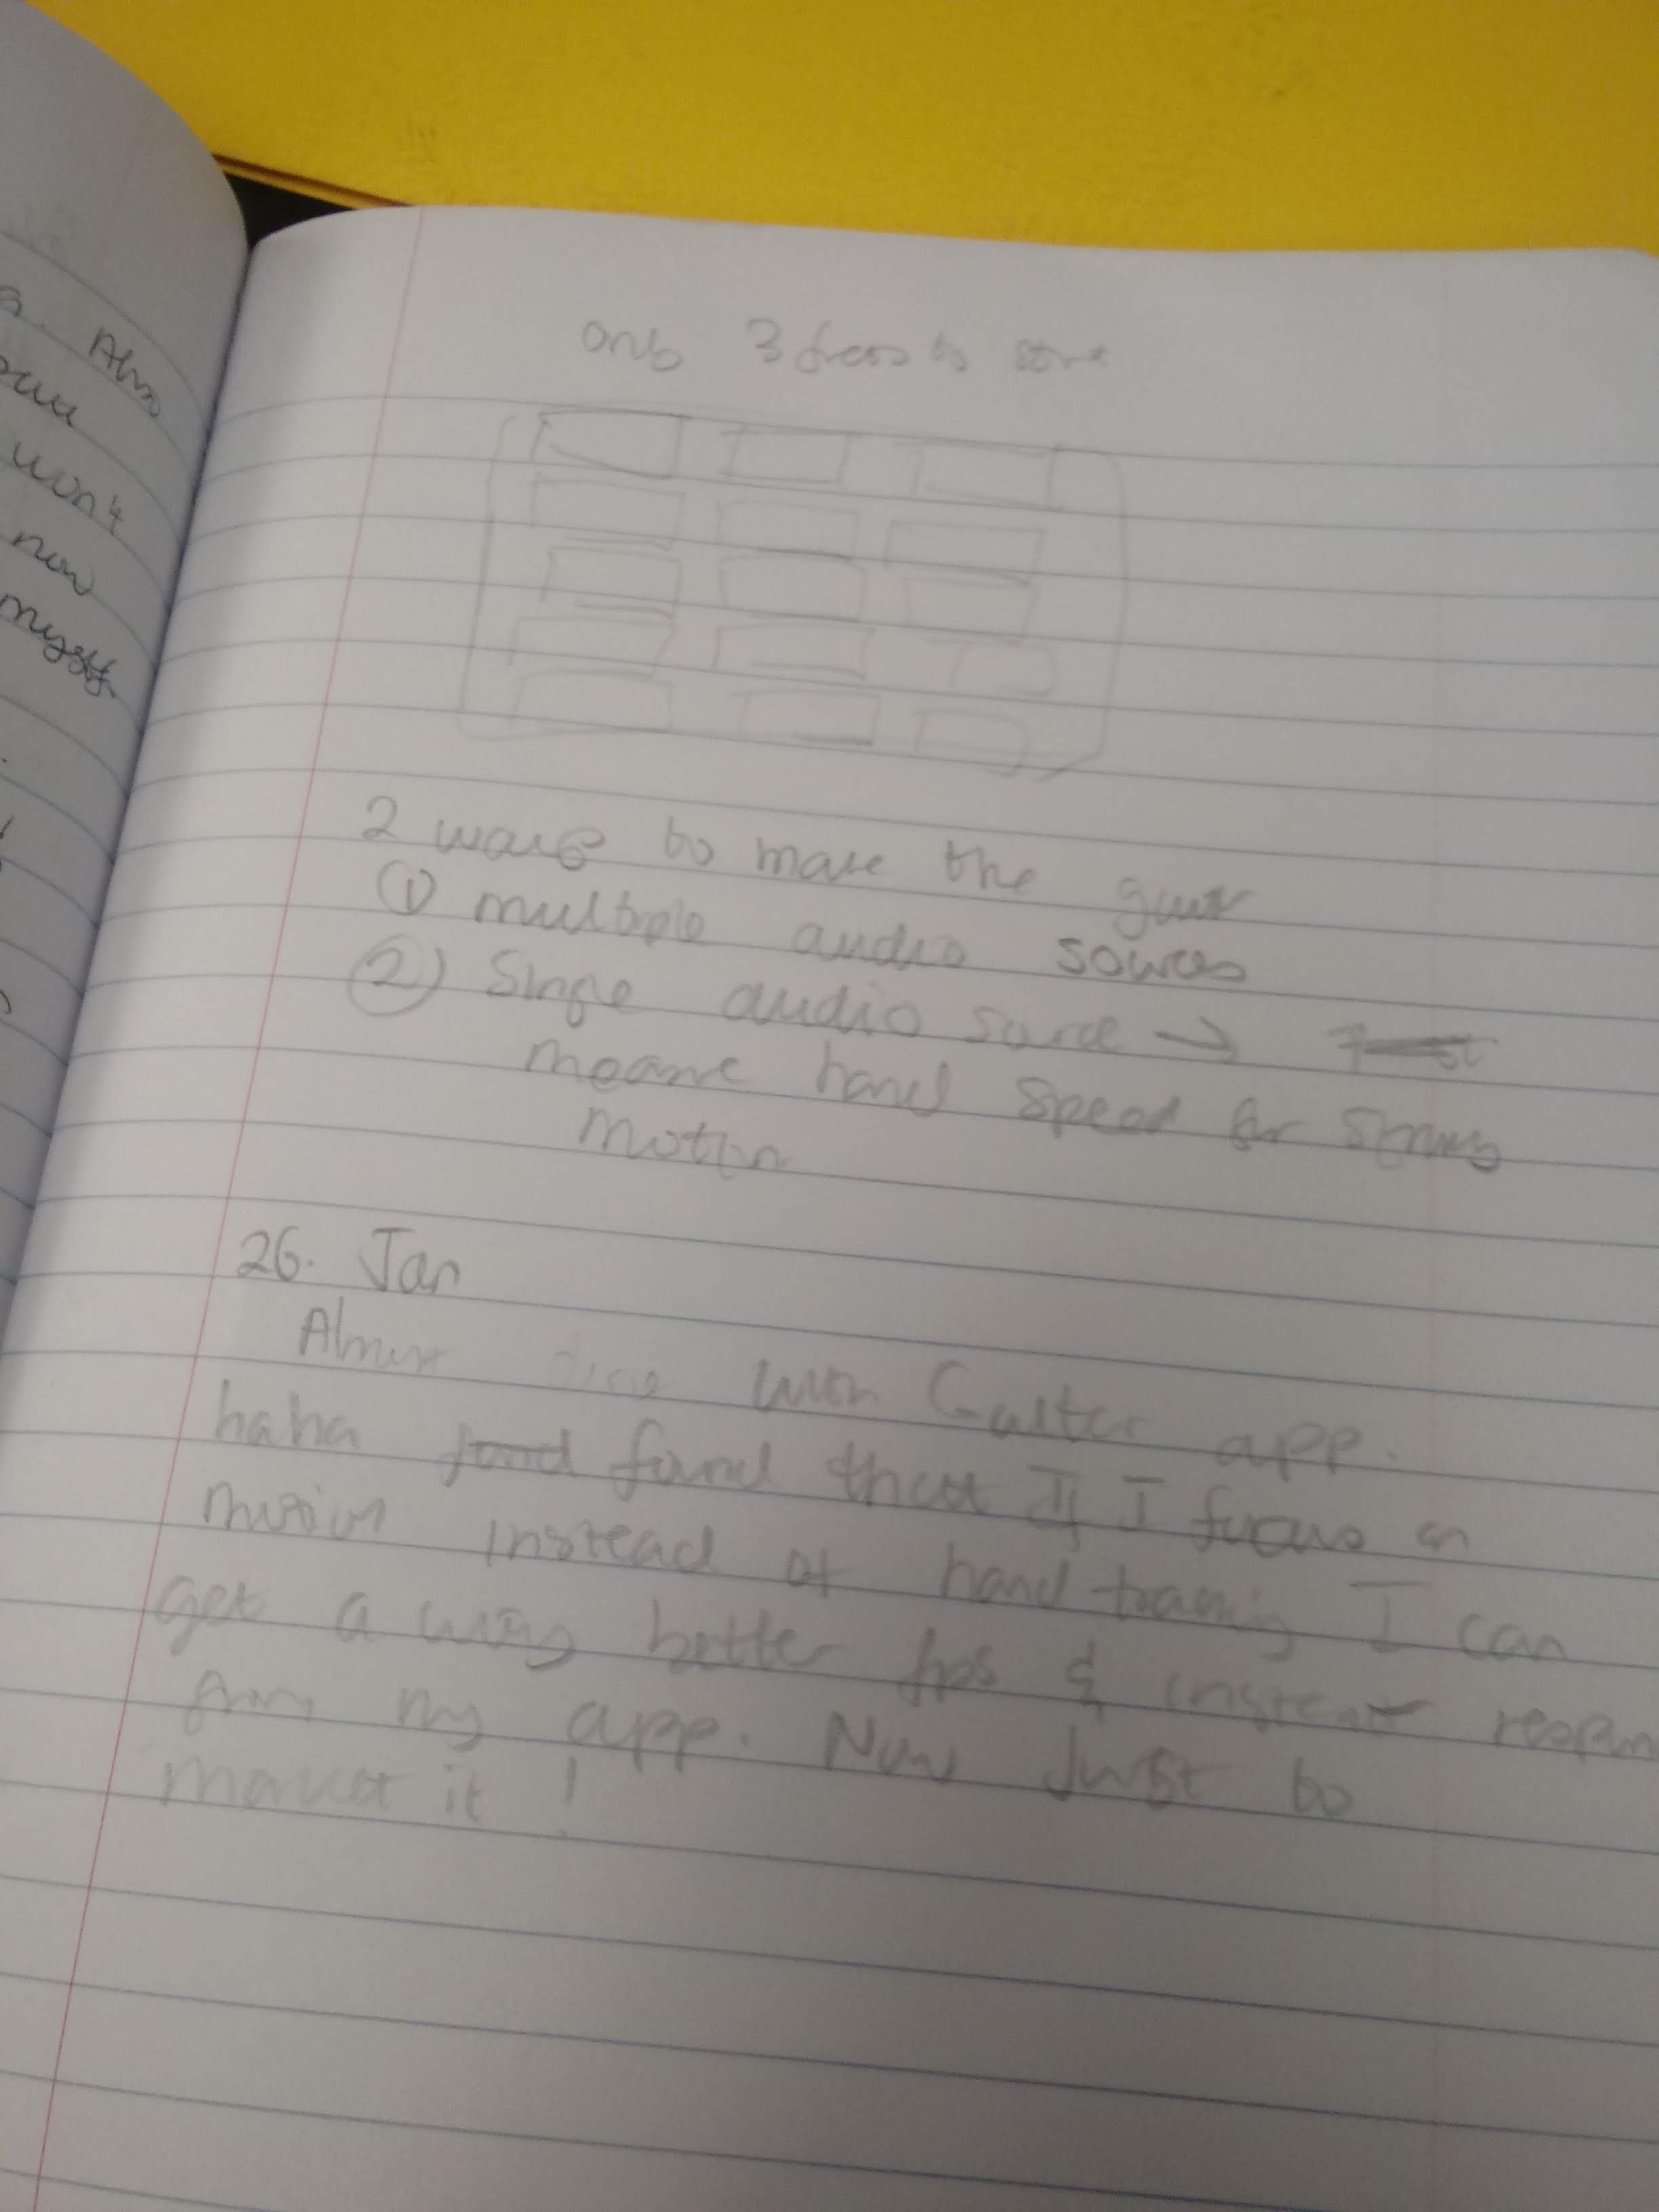 Also
won't
now
myself.
only 3 frets to start
2 ways to make the guitar
① multiple audio sources
② Single audio source →
means hand speed for strums
motion
26. Jan
Almost with Guitar app.
haha found found that If I focus on
motion instead of hand tracking I can
get a way better fps & instant
from my app. Now Just to
market it !